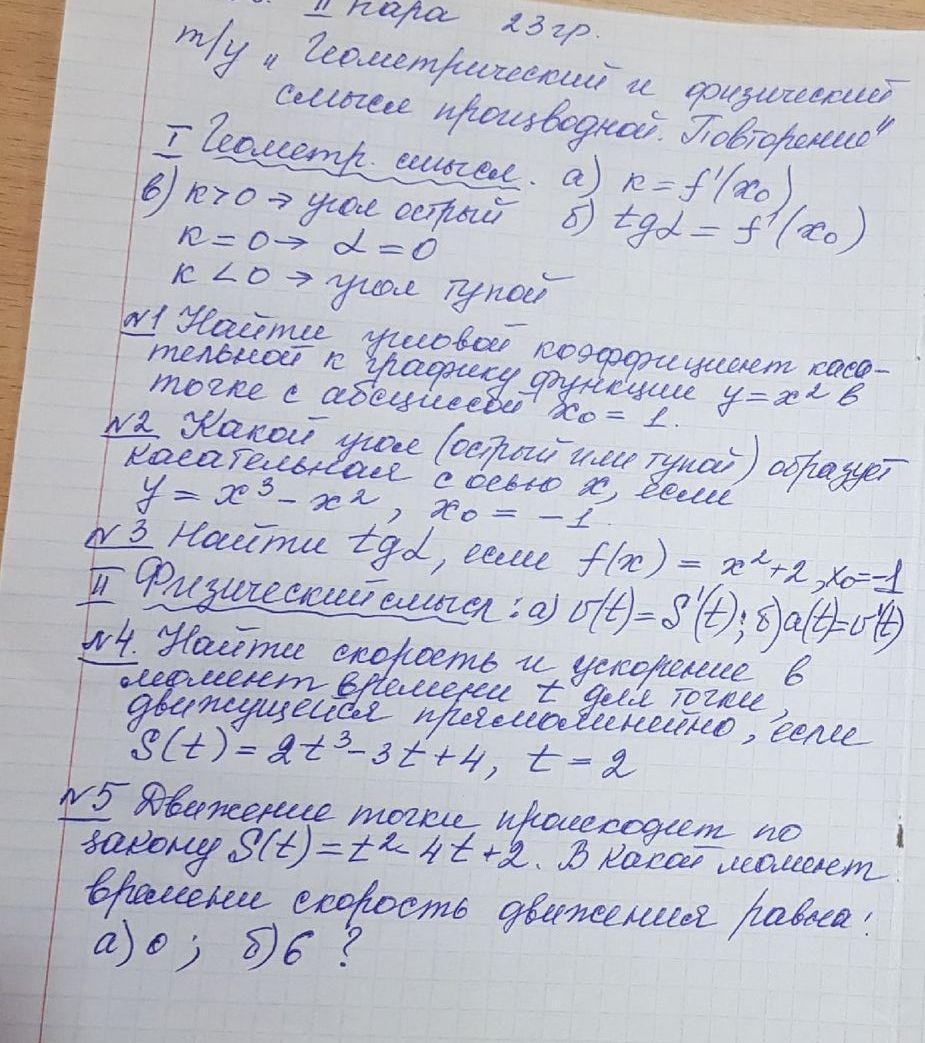 II пара 23 гр.
т/у „Геометрический и физический
смысл производной. Повторение"
I Геометр. смысл. а) к = f'(x₀)
в) к > 0 → угол острый б) tgα = f'(x₀)
к = 0 → α = 0
к < 0 → угол тупой
№1 Найти угловой коэффициент каса-
тельной к графику функции y = x² в
точке с абсциссой x₀ = 1.
№2 Какой угол (острый или тупой) образует
касательная с осью x, если
y = x³ - x², x₀ = -1.
№3 Найти tgα, если f(x) = x² + 2, x₀ = -1
II Физический смысл: а) v(t) = S'(t); б) a(t) = v'(t)
№4. Найти скорость и ускорение в
момент времени t для точки,
движущейся прямолинейно, если
S(t) = 2t³ - 3t + 4, t = 2
№5 Движение точки происходит по
закону S(t) = t² - 4t + 2. В какой момент
времени скорость движения равна:
а) 0; б) 6?